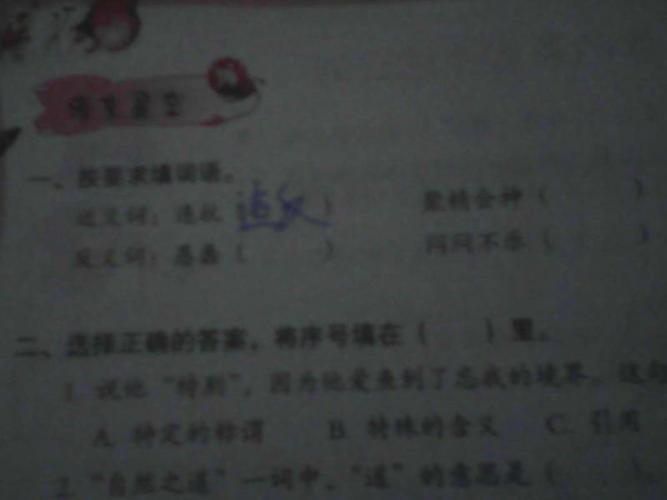 一、按要求填词语。
近义词：逃（ ） 聚精会神（ ）
反义词：愚蠢（ ） 闷闷不乐（ ）
二、选择正确的答案，将序号填在（ ）里。
1. 说他“特别”，因为他爱鱼到了忘我的境界。这句
A. 特定的称谓 B. 特殊的含义 C. 引用
2. “自然之道”一词中，“道”的意思是（ ）。